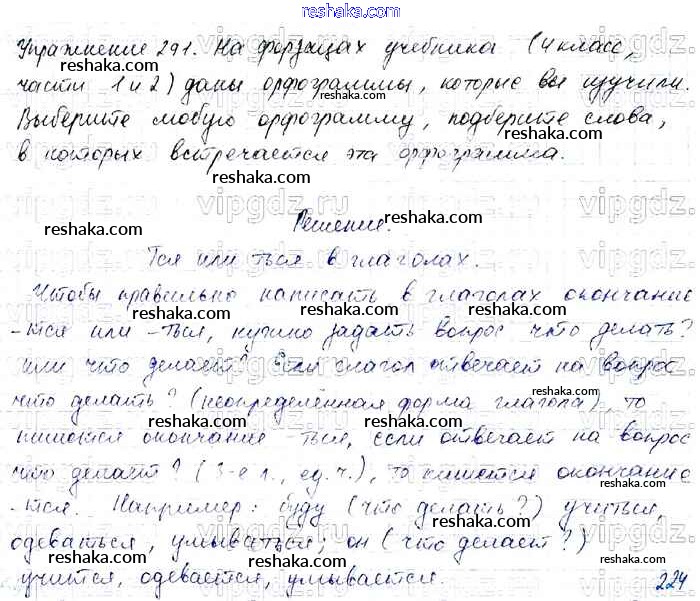 reshaka.com
Упражнение 291. На форзацах учебника (4 класс,
части 1 и 2) даны орфограммы, которые вы изучили.
Выберите любую орфограмму, подберите слова,
в которых встречается эта орфограмма.
Решение.
Тся или ться в глаголах.
Чтобы правильно написать в глаголах окончание
-тся или -ться, нужно задать вопрос что делать?
или что делает? Если глагол отвечает на вопрос
что делать? (неопределённая форма глагола), то
пишется окончание -ться, если отвечает на вопрос
что делает? (3-е л., ед. ч.), то пишется окончание
-тся. Например: буду (что делать?) учиться,
одеваться, умываться; он (что делает?)
учится, одевается, умывается.
224